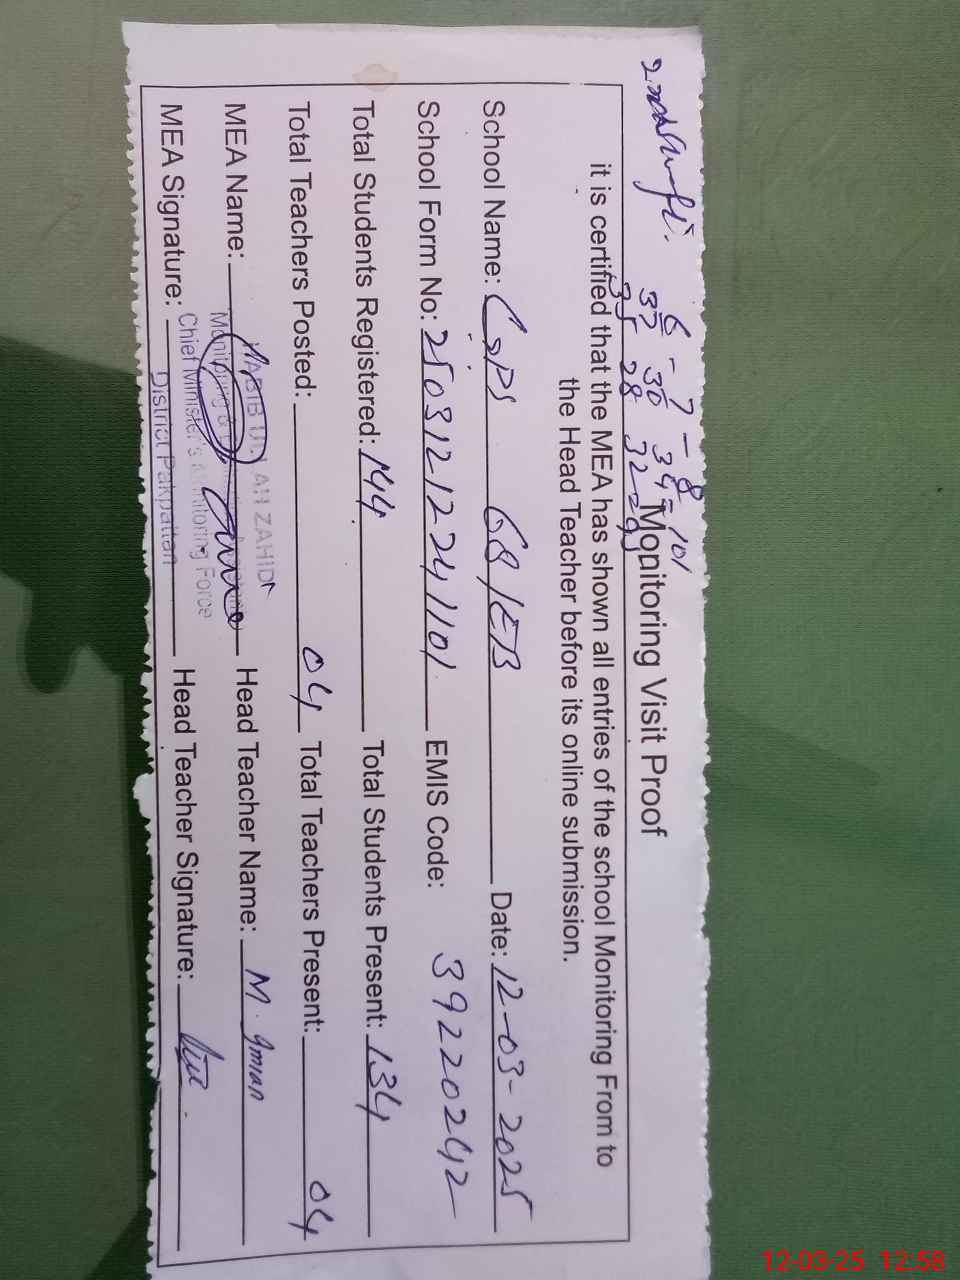 6 - 7 - 8 - 101
37 - 30 34
35 28 32 29
Monitoring Visit Proof
it is certified that the MEA has shown all entries of the school Monitoring From to
the Head Teacher before its online submission.
School Name: GPS 68/EB Date: 12-03-2025
School Form No: 250312122241101 EMIS Code: 39220242
Total Students Registered: 144 Total Students Present: 134
Total Teachers Posted: 04 Total Teachers Present: 04
MEA Name: HABIB ULLAH ZAHID Head Teacher Name: M. Iman
Monitoring &
Chief Minister's Monitoring Force
MEA Signature: District Pakpattan Head Teacher Signature:
12-03-25 12:58